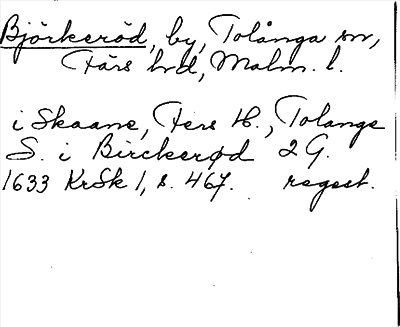 Björkeröd, by, Tolånga sn,
Färs hrd, Malm. l.
i Skaane, Fers H., Tolange
S. i Birckerød 2 G.
1633 KrSk 1, s. 467. regest.